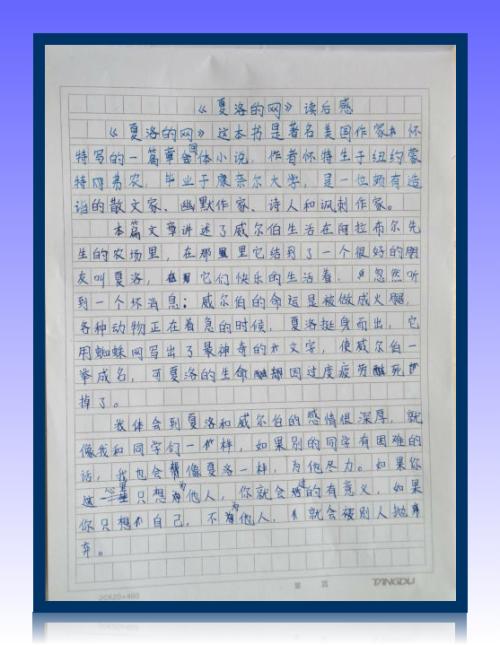 《夏洛的网》读后感
《夏洛的网》这本书是著名美国作家怀
特写的一篇章回体小说，作者怀特生于纽约蒙
特弗农，毕业于康奈尔大学，是一位颇有造
诣的散文家、幽默作家、诗人和讽刺作家。
本篇文章讲述了威尔伯生活在阿拉布尔先
生的农场里，在那里它结到了一个很好的朋
友叫夏洛，它们快乐的生活着，忽然听
到一个坏消息；威尔伯的命运是被做成火腿，
各种动物正在着急的时候，夏洛挺身而出，它
用蜘蛛网写出了最神奇的文字，使威尔伯一
举成名，可夏洛的生命因过度疲劳死
掉了。
我体会到夏洛和威尔伯的感情很深厚，就
像我和同学们一样，如果别的同学有困难的
话，我也会像夏洛一样，为他尽力。如果你
这一心里只想为他人，你就会活的有意义，如果
你只想自己，不为他人，就会被别人抛
弃。
20×20=400
第 页
TANGDU